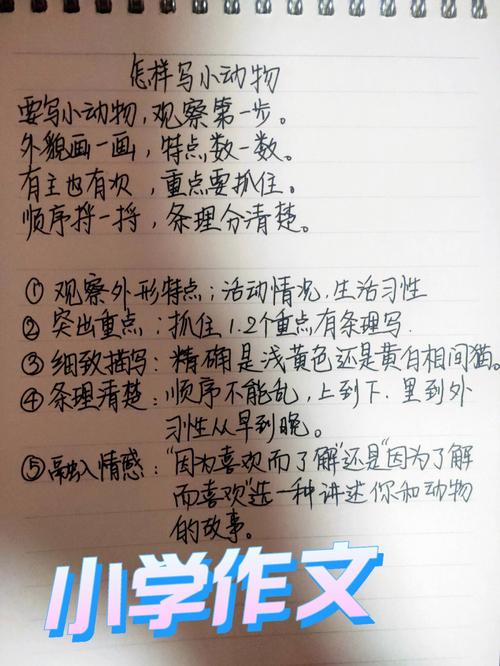 怎样写小动物
要写小动物,观察第一步。
外貌画一画,特点数一数。
有主也有次,重点要抓住。
顺序捋一捋,条理分清楚。
①观察外形特点;活动情况,生活习性
②突出重点:抓住1.2个重点,有条理写.
③细致描写:精确是浅黄色还是黄白相间猫。
④条理清楚:顺序不能乱,上到下.里到外
习性从早到晚。
⑤融入情感:“因为喜欢而了解”还是“因为了解
而喜欢”选一种讲述你和动物
的故事。
小学作文